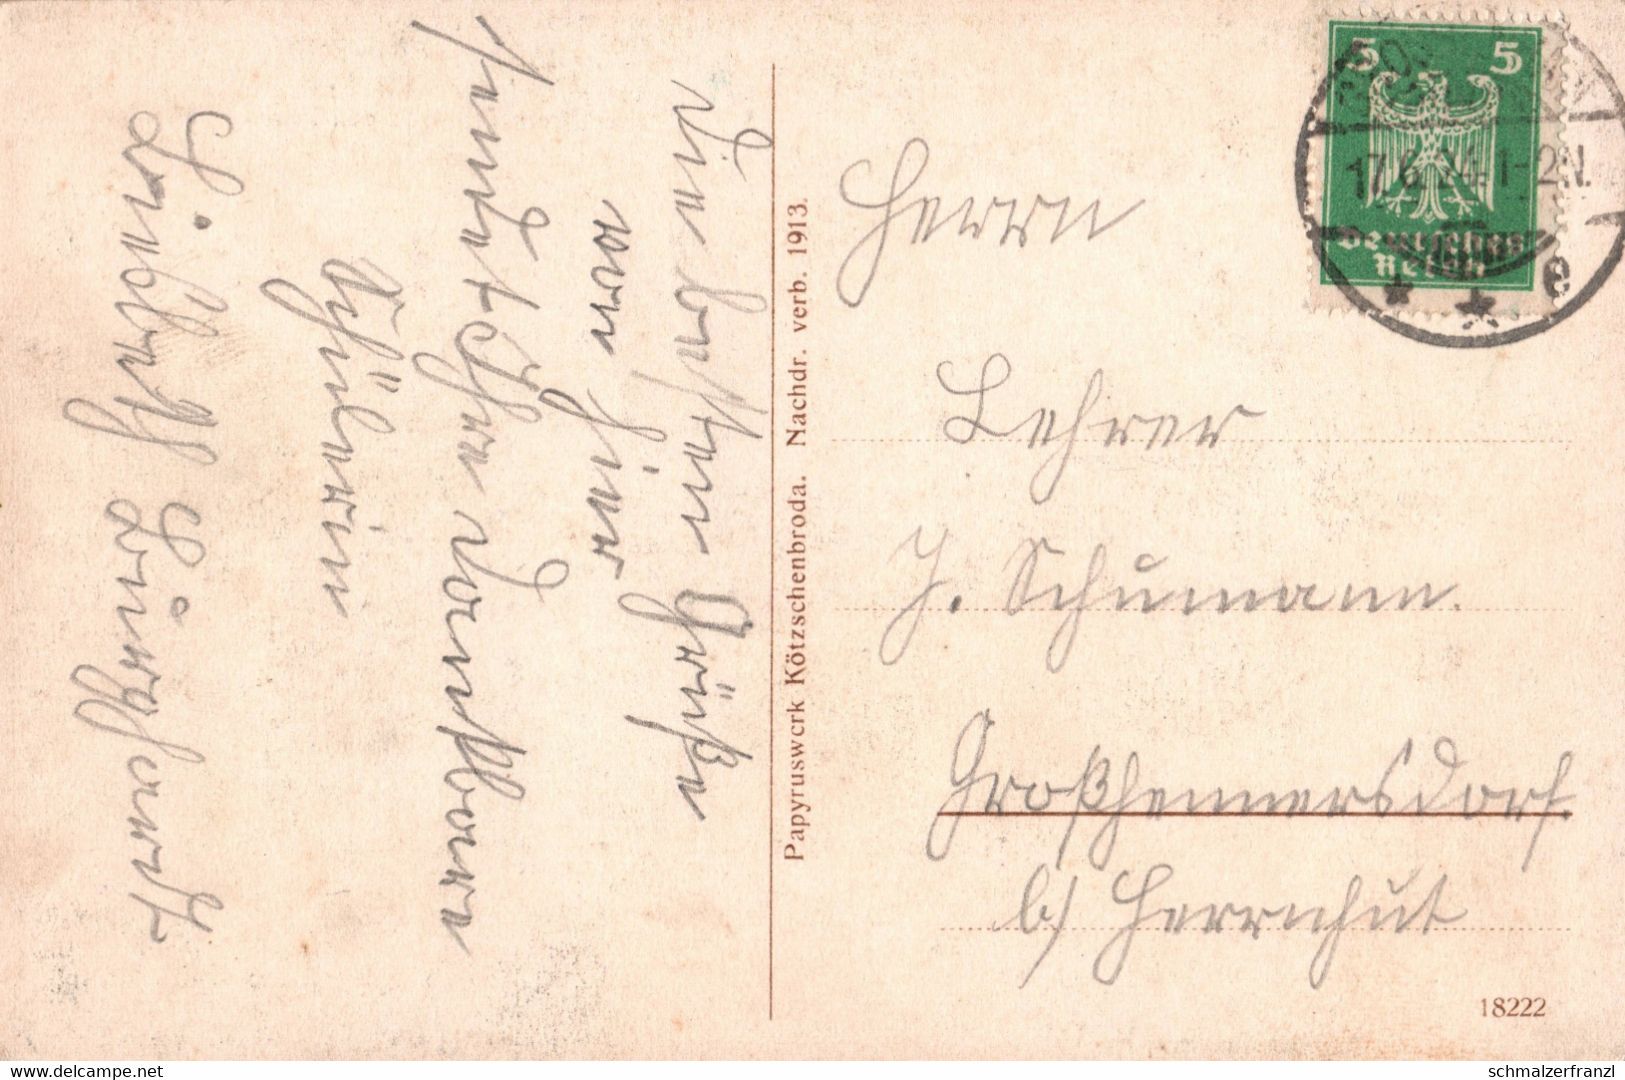 Die besten Grüße
von hier
sendet Ihre dankbare
Schülerin
Liesbeth
Herrn
Lehrer
J. Schumann.
Großhennersdorf.
b/ Herrnhut
Papyruswerk Kötzschenbroda. Nachdr. verb. 1913.
18222
5 5
Deutsches
Reich
17.6. 1-2N.
* * e
delcampe.net
schmalzerfranzl